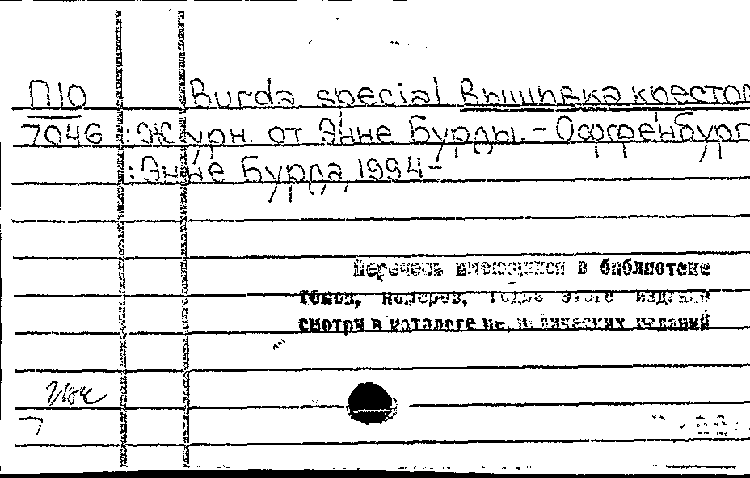 П10 Burda special Вышивка крестом
7046 : Журн. от Энне Бурды. - Оффенбург
: Энне Бурда, 1994-
Перечень имеющихся в библиотеке
томов, номеров, годов этого издания
смотри в каталоге периодических изданий